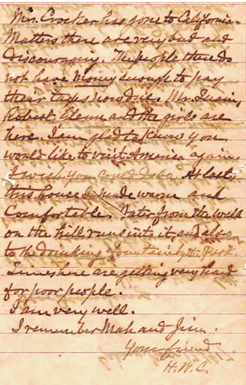 Mrs. Crocker has gone to California
Matters there are very bad and
discouraging. The people there do
not have money enough to pay
their taxes nowadays. Mrs.
Robert, Glenn and the girls are
here. I am glad to know you
would like to visit America again.
I wish you could do so. At last
this house is made warm and
comfortable. Water from the well
on the hill runs into it and also
to the drinking fountain by the
Times here are getting very hard
for poor people.
I am very well.
I remember Mah and Jim.
Your friend
H.W.C.